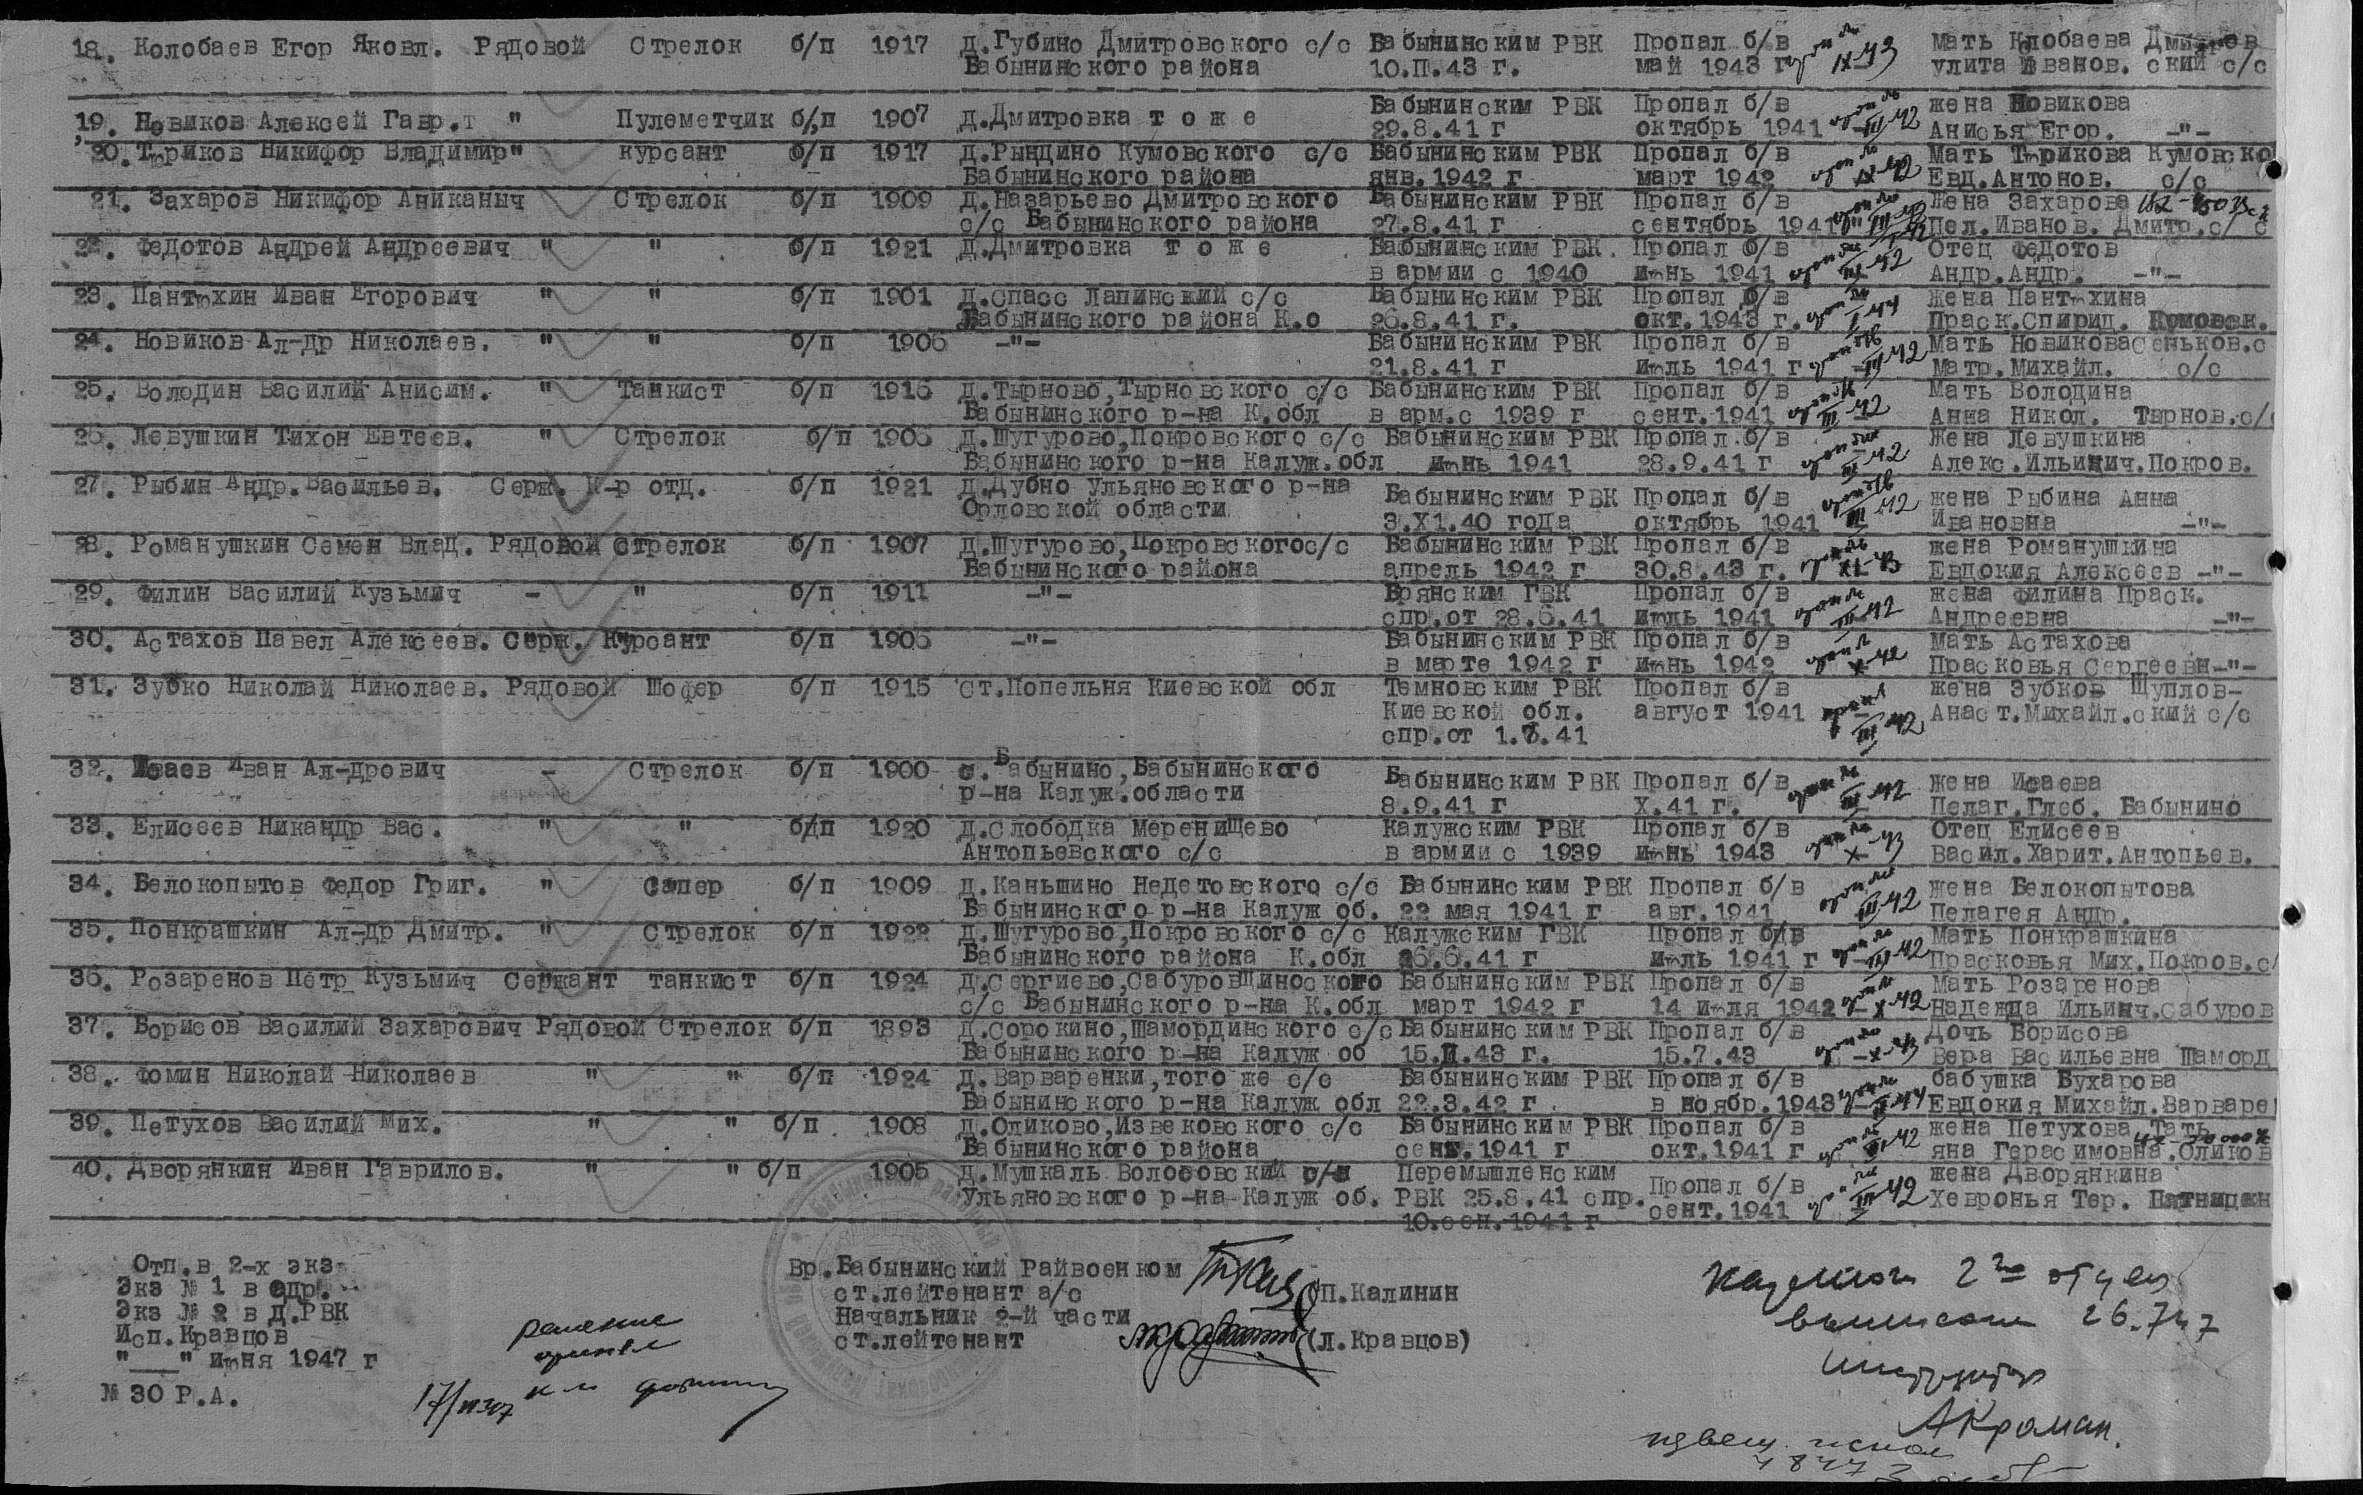 18. Колобаев Егор Яковл. Рядовой Стрелок б/п 1917 д.Губино Дмитровского с/с Бабынинским РВК Пропал б/в мать Клобаева Дмитров
Бабынинского района 10.П.43 г. май 1943 г IX-43 улита Иванов. ский с/с
19. Новиков Алексей Гавр. " Пулеметчик б/п 1907 д.Дмитровка т о ж е Бабынинским РВК Пропал б/в жена Новикова
29.8.41 г октябрь 1941 III-42 Анисья Егор. -"-
20. Тюриков Никифор Владимир" курсант б/п 1917 д.Рындино Кумовского с/с Бабынинским РВК Пропал б/в Мать Тюрикова Кумовско
Бабынинского района янв.1942 г март 1942 Евд.Антонов. с/с
21. Захаров Никифор Аниканыч Стрелок б/п 1909 д.Назарьево Дмитровского Бабынинским РВК Пропал б/в Жена Захарова
с/с Бабынинского района 27.8.41 г сентябрь 1941 Пел.Иванов. Дмитр.с/с
22. Федотов Андрей Андреевич " " б/п 1921 д.Дмитровка т о ж е Бабынинским РВК. Пропал б/в Отец Федотов
в армии с 1940 июнь 1941 III-42 Андр.Андр. -"-
23. Пантюхин Иван Егорович " " б/п 1901 д.Спасс Лапинский с/с Бабынинским РВК Пропал б/в Жена Пантюхина
Бабынинского района К.о 26.8.41 г. окт.1943 г. I-44 Праск.Спирид. Кумовск.
24. Новиков Ал-др Николаев. " " б/п 1906 -"- Бабынинским РВК Пропал б/в Мать Новикова Сеньков.с
21.8.41 г июль 1941 г III-42 Матр.Михайл. с/с
25. Володин Василий Анисим. " Танкист б/п 1916 д.Тырново,Тырновского с/с Бабынинским РВК Пропал б/в Мать Володина
Бабынинского р-на К.обл в арм.с 1939 г сент.1941 III-42 Анна Никол. Тырнов.с/с
26. Левушкин Тихон Евтеев. " Стрелок б/п 1905 д.Шугурово,Покровского с/с Бабынинским РВК Пропал б/в Жена Левушкина
Бабынинского р-на Калуж.обл июнь 1941 28.9.41 г III-42 Алекс.Ильинич.Покров.
27. Рыбин Андр.Васильев. Серж. К-р отд. б/п 1921 д.Дубно Ульяновского р-на Бабынинским РВК Пропал б/в жена Рыбина Анна
Орловской области 3.X1.40 года октябрь 1941 III-42 Ивановна -"-
28. Романушкин Семен Влад. Рядовой стрелок б/п 1907 д.Шугурово,Покровского с/с Бабынинским РВК Пропал б/в жена Романушкина
Бабынинского района апрель 1942 г 30.8.43 г. XI-43 Евдокия Алексеев -"-
29. Филин Василий Кузьмич - " б/п 1911 -"- Брянским ГВК Пропал б/в жена Филина Праск.
спр.от 28.6.41 июль 1941 III-42 Андреевна -"-
30. Астахов Павел Алексеев. Серж. Курсант б/п 1905 -"- Бабынинским РВК Пропал б/в Мать Астахова
в марте 1942 г июнь 1942 X-42 Прасковья Сергеевн-"-
31. Зубко Николай Николаев. Рядовой Шофер б/п 1915 Ст.Попельня Киевской обл Темновским РВК Пропал б/в жена Зубков Шуплов-
Киевской обл. август 1941 III-42 Анаст.Михайл.ский с/с
спр.от 1.7.41
32. Исаев Иван Ал-дрович - Стрелок б/п 1900 с.Бабынино,Бабынинского Бабынинским РВК Пропал б/в жена Исаева
р-на Калуж.области 8.9.41 г X.41 г. III-42 Пелаг.Глеб. Бабынино
33. Елисеев Никандр Вас. " " б/п 1920 д.Слободка Меренищево Калужским РВК Пропал б/в Отец Елисеев
Антопьевского с/с в армии с 1939 июнь 1943 X-43 Васил.Харит.Антопьев.
34. Белокопытов Федор Григ. " Сапер б/п 1909 д.Каньшино Недетовского с/с Бабынинским РВК Пропал б/в жена Белокопытова
Бабынинского р-на Калуж об. 22 мая 1941 г авг.1941 III-42 Пелагея Андр.
35. Понкрашкин Ал-др Дмитр. " Стрелок б/п 1922 д.Шугурово,Покровского с/с Калужским ГВК Пропал б/в Мать Понкрашкина
Бабынинского района К.обл 26.6.41 г июль 1941 г III-42 Прасковья Мих.Покров.с/
36. Розаренов Петр Кузьмич Сержант танкист б/п 1924 д.Сергиево,Сабуровщинского Бабынинским РВК Пропал б/в Мать Розаренова
с/с Бабынинского р-на К.обл март 1942 г 14 июля 1942 X-42 Надежда Ильинч.Сабуров
37. Борисов Василий Захарович Рядовой Стрелок б/п 1893 д.Сорокино,Шамординского с/с Бабынинским РВК Пропал б/в Дочь Борисова
Бабынинского р-на Калуж об 15.П.43 г. 15.7.43 X-43 Вера Васильевна Шаморд
38. Фомин Николай Николаев " " б/п 1924 д.Варваренки,того же с/с Бабынинским РВК Пропал б/в бабушка Бухарова
Бабынинского р-на Калуж обл 22.3.42 г. в ноябр.1943 Евдокия Михайл.Варваре
39. Петухов Василий Мих. " " б/п 1908 д.Оликово,Извековского с/с Бабынинским РВК Пропал б/в жена Петухова Тать
Бабынинского района сент.1941 г окт.1941 г яна Герасимовна.Оликов
40. Дворянкин Иван Гаврилов. " " б/п 1905 д.Мушкаль Волосовский с/с Перемышленским Пропал б/в жена Дворянкина
Ульяновского р-на Калуж об. РВК 25.8.41 спр. сент.1941 III-42 Хевронья Тер. Пятницкн
10.сен.1941 г
Отп.в 2-х экз
Экз № 1 в адр.
Экз № 2 в Д.РВК
Исп.Кравцов
"___" июня 1947 г
№ 30 Р.А.
Вр.Бабынинский Райвоенком
ст.лейтенант а/с (П.Калинин
Начальник 2-й части
ст.лейтенант (Л.Кравцов)
решение
принял
26.7.47
АКроман.